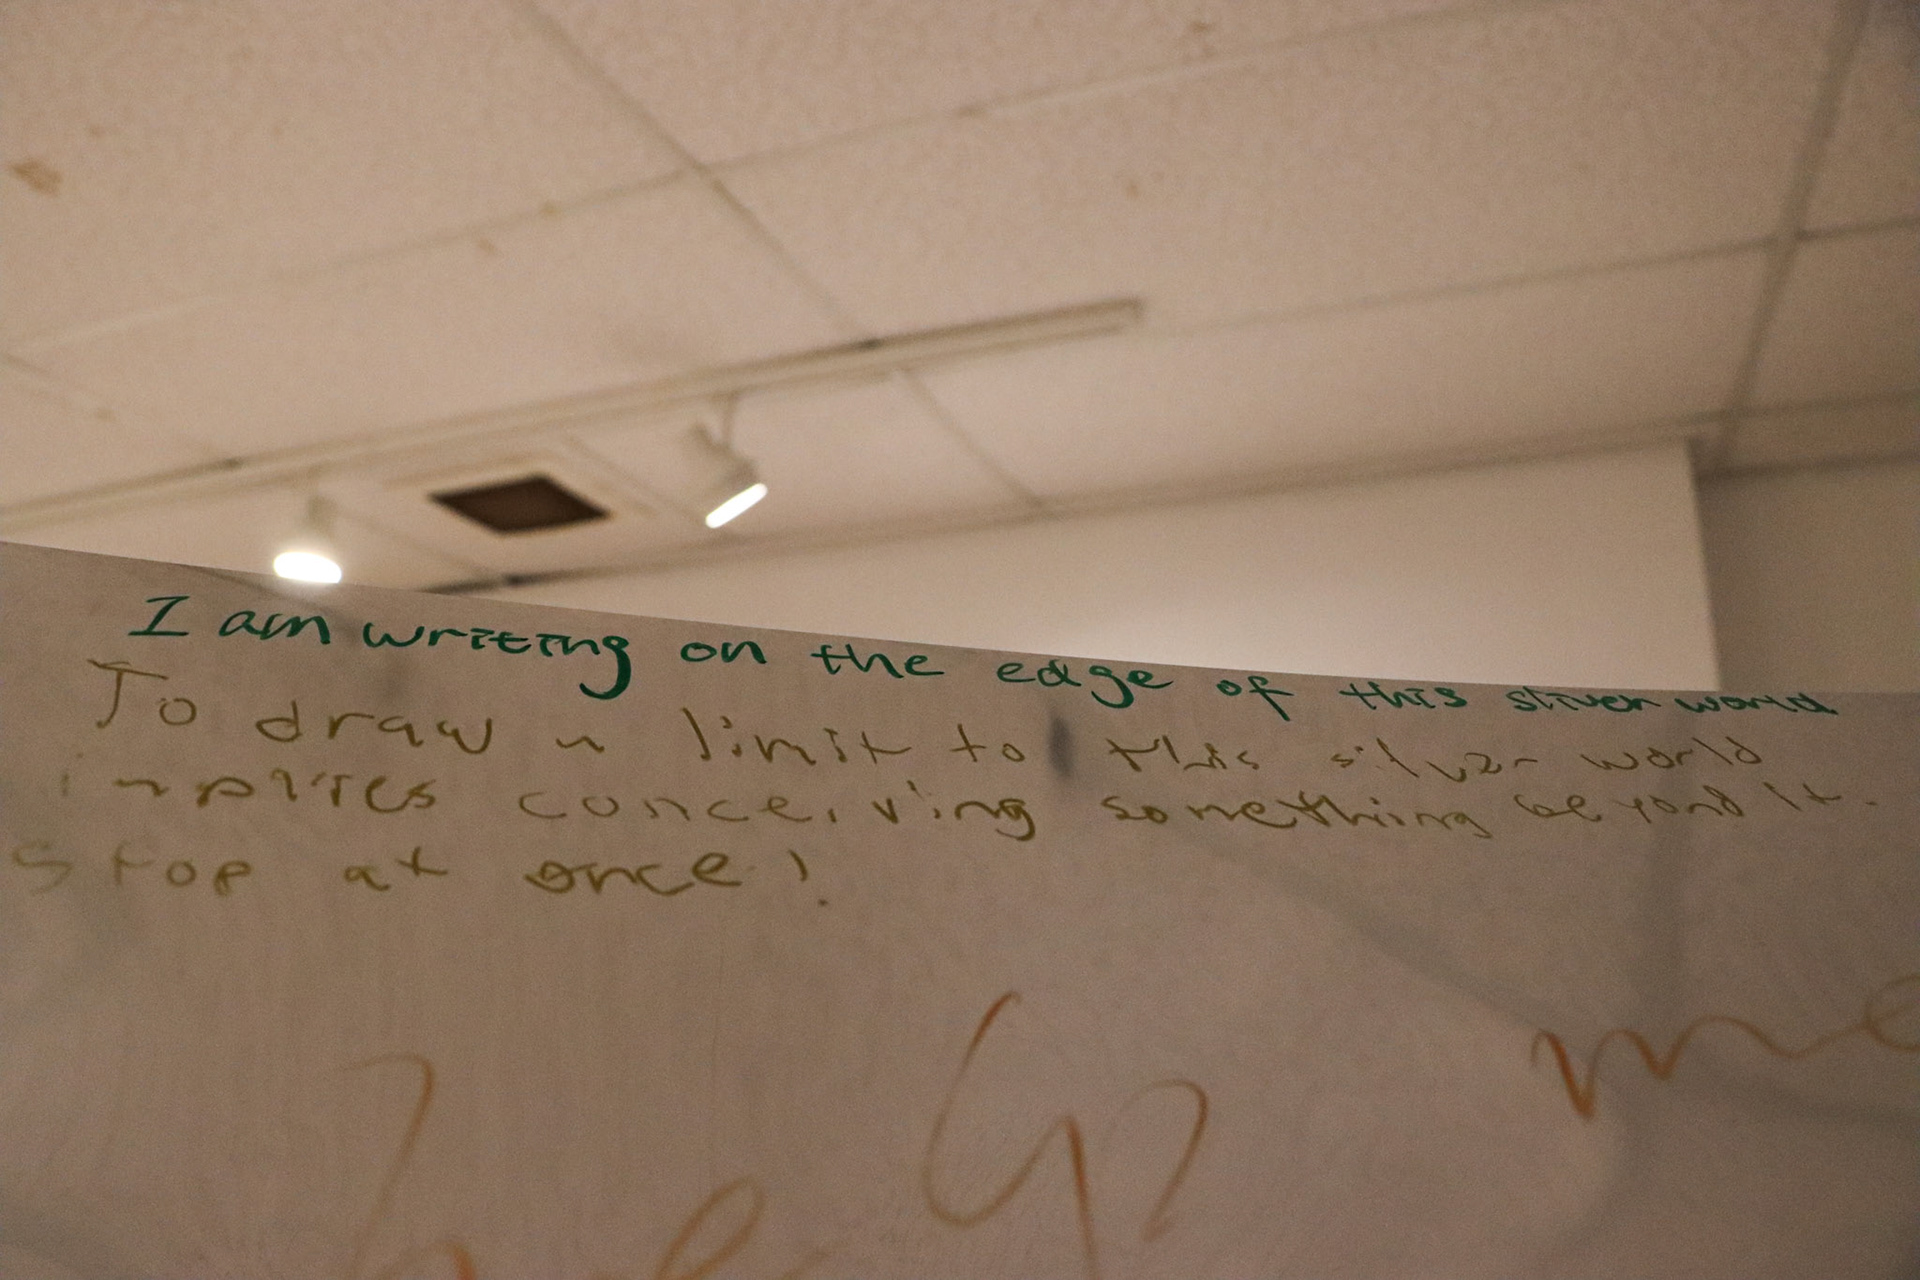 I am writing on the edge of this silver world
To draw a limit to this silver world
implies conceiving something beyond it.
Stop at once!